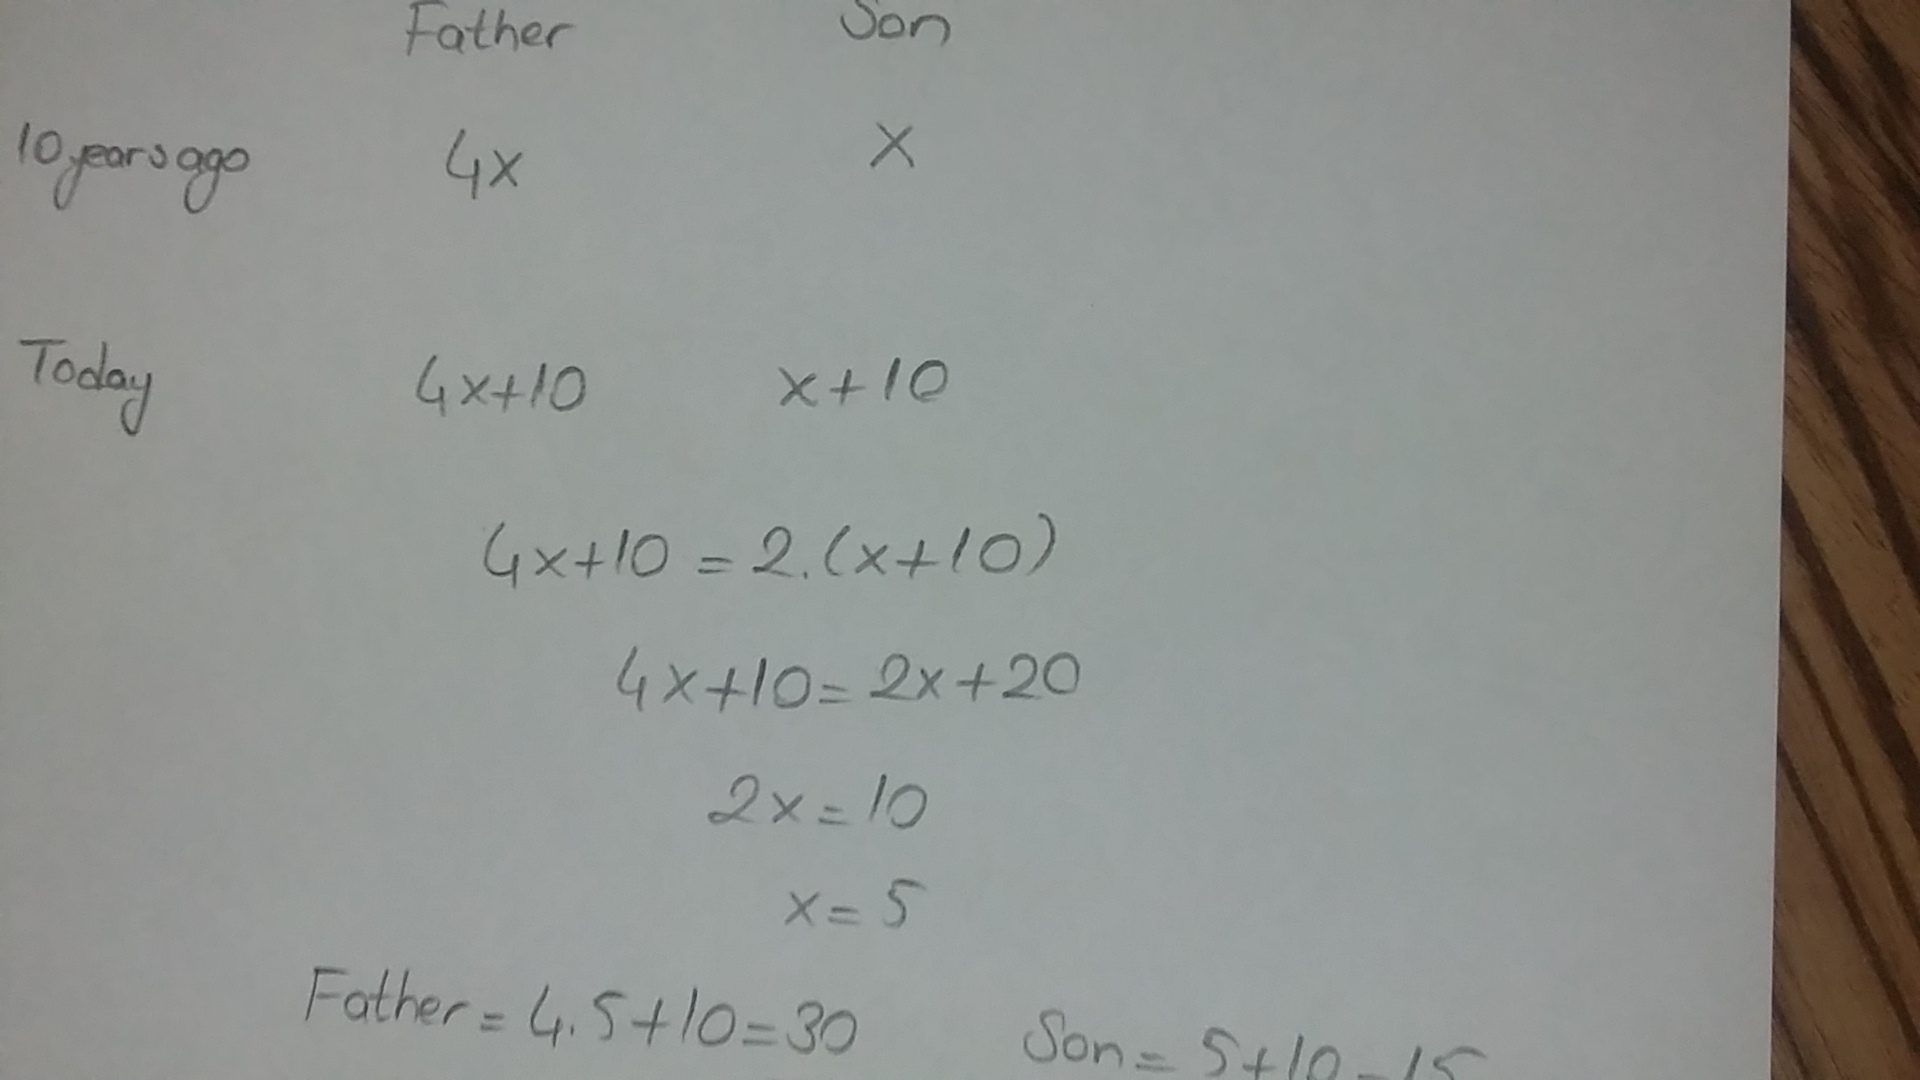 Father Son
10 years ago 4x x
Today 4x+10 x+10
4x+10 = 2.(x+10)
4x+10 = 2x+20
2x = 10
x = 5
Father = 4.5+10=30 Son = 5+10=15